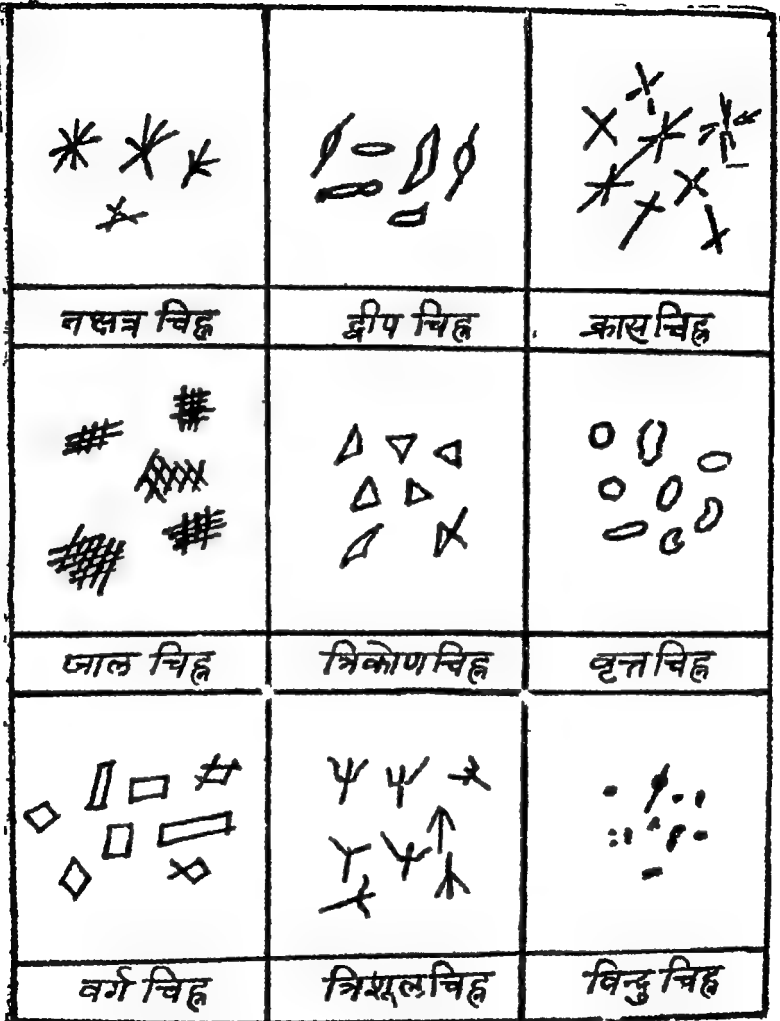 नक्षत्र चिह्न
द्वीप चिह्न
क्रास चिह्न
जाल चिह्न
त्रिकोण चिह्न
वृत्त चिह्न
वर्ग चिह्न
त्रिशूल चिह्न
विन्दु चिह्न